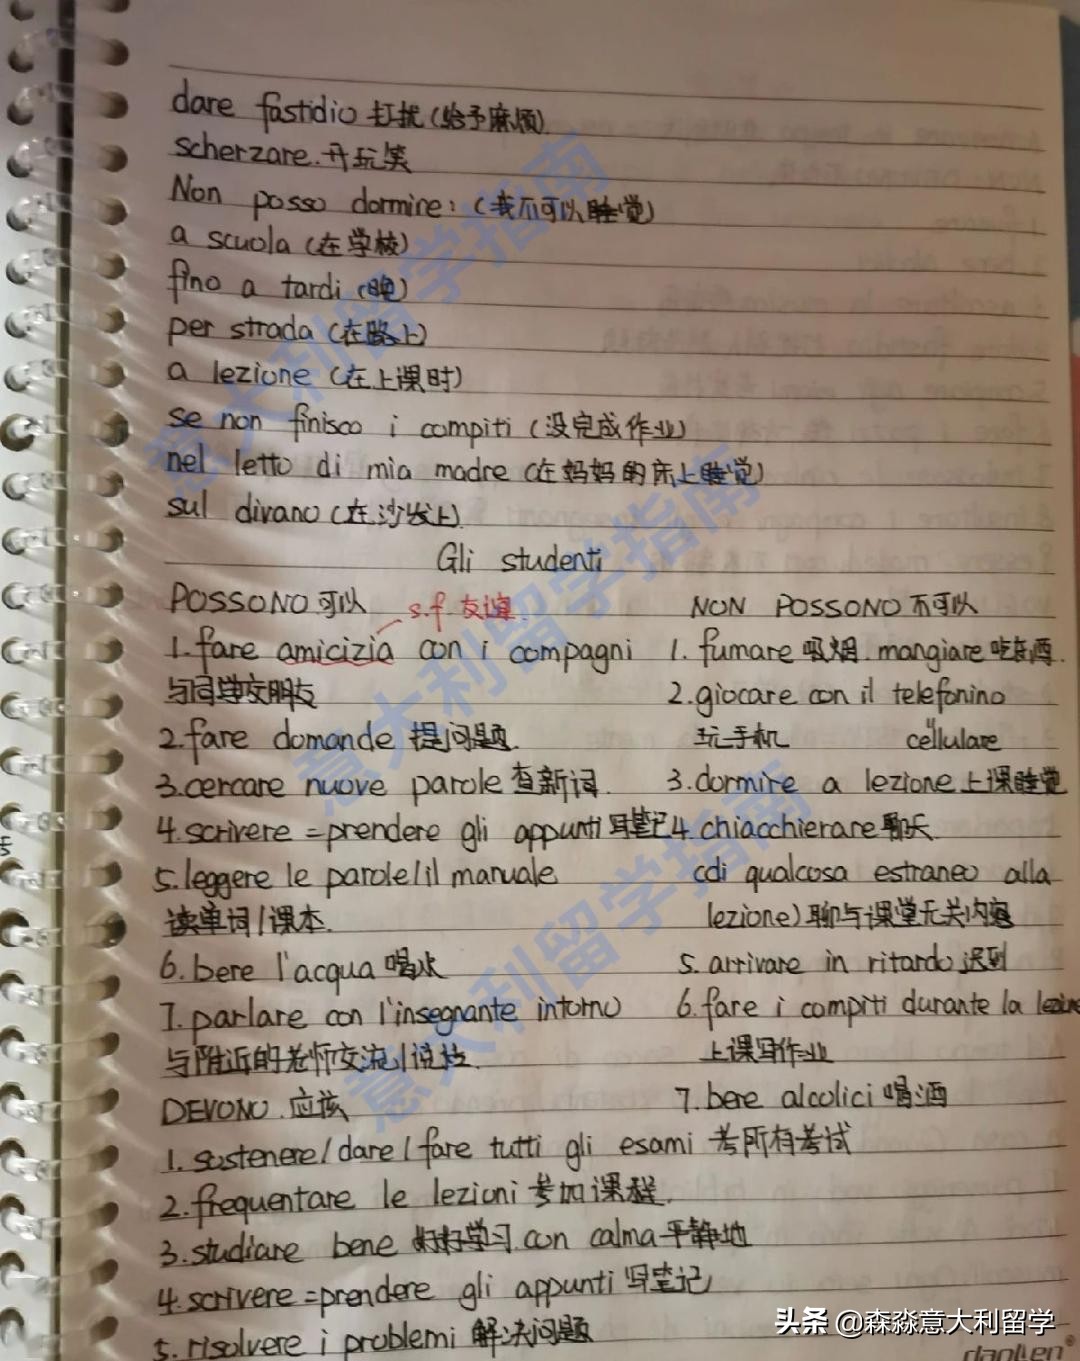 dare fastidio 打扰(给予麻烦)
scherzare.开玩笑
Non posso dormire:(我不可以睡觉)
a scuola (在学校)
fino a tardi (晚)
per strada (在路上)
a lezione (在上课时)
se non finisco i compiti (没完成作业)
nel letto di mia madre (在妈妈的床上睡觉)
sul divano (在沙发上)
Gli studenti
POSSONO 可以
s.f. 友谊.
1.fare amicizia con i compagni
与同学交朋友
2.fare domande 提问题.
3.cercare nuove parole 查新词.
4.scrivere =prendere gli appunti 写笔记
5.leggere le parole/il manuale
读单词/课本.
6.bere l'acqua 喝水
7.parlare con l'insegnante intorno
与附近的老师交流/说话.
NON POSSONO 不可以
1.fumare 吸烟. mangiare 吃东西.
2.giocare con il telefonino
玩手机 cellulare
3.dormire a lezione 上课睡觉
4.chiacchierare 聊天.
(di qualcosa estraneo alla
lezione) 聊与课堂无关内容
5.arrivare in ritardo 迟到
6.fare i compiti durante la lezione
上课写作业
7.bere alcolici 喝酒
DEVONO.应该
1.sostenere/dare/fare tutti gli esami 考所有考试
2.frequentare le lezioni 参加课程.
3.studiare bene 好好学习.con calma 平静地
4.scrivere =prendere gli appunti 写笔记
5.risolvere i problemi 解决问题
意大利留学指南
意大利留学指南
意大利留学指南
头条 @森淼意大利留学